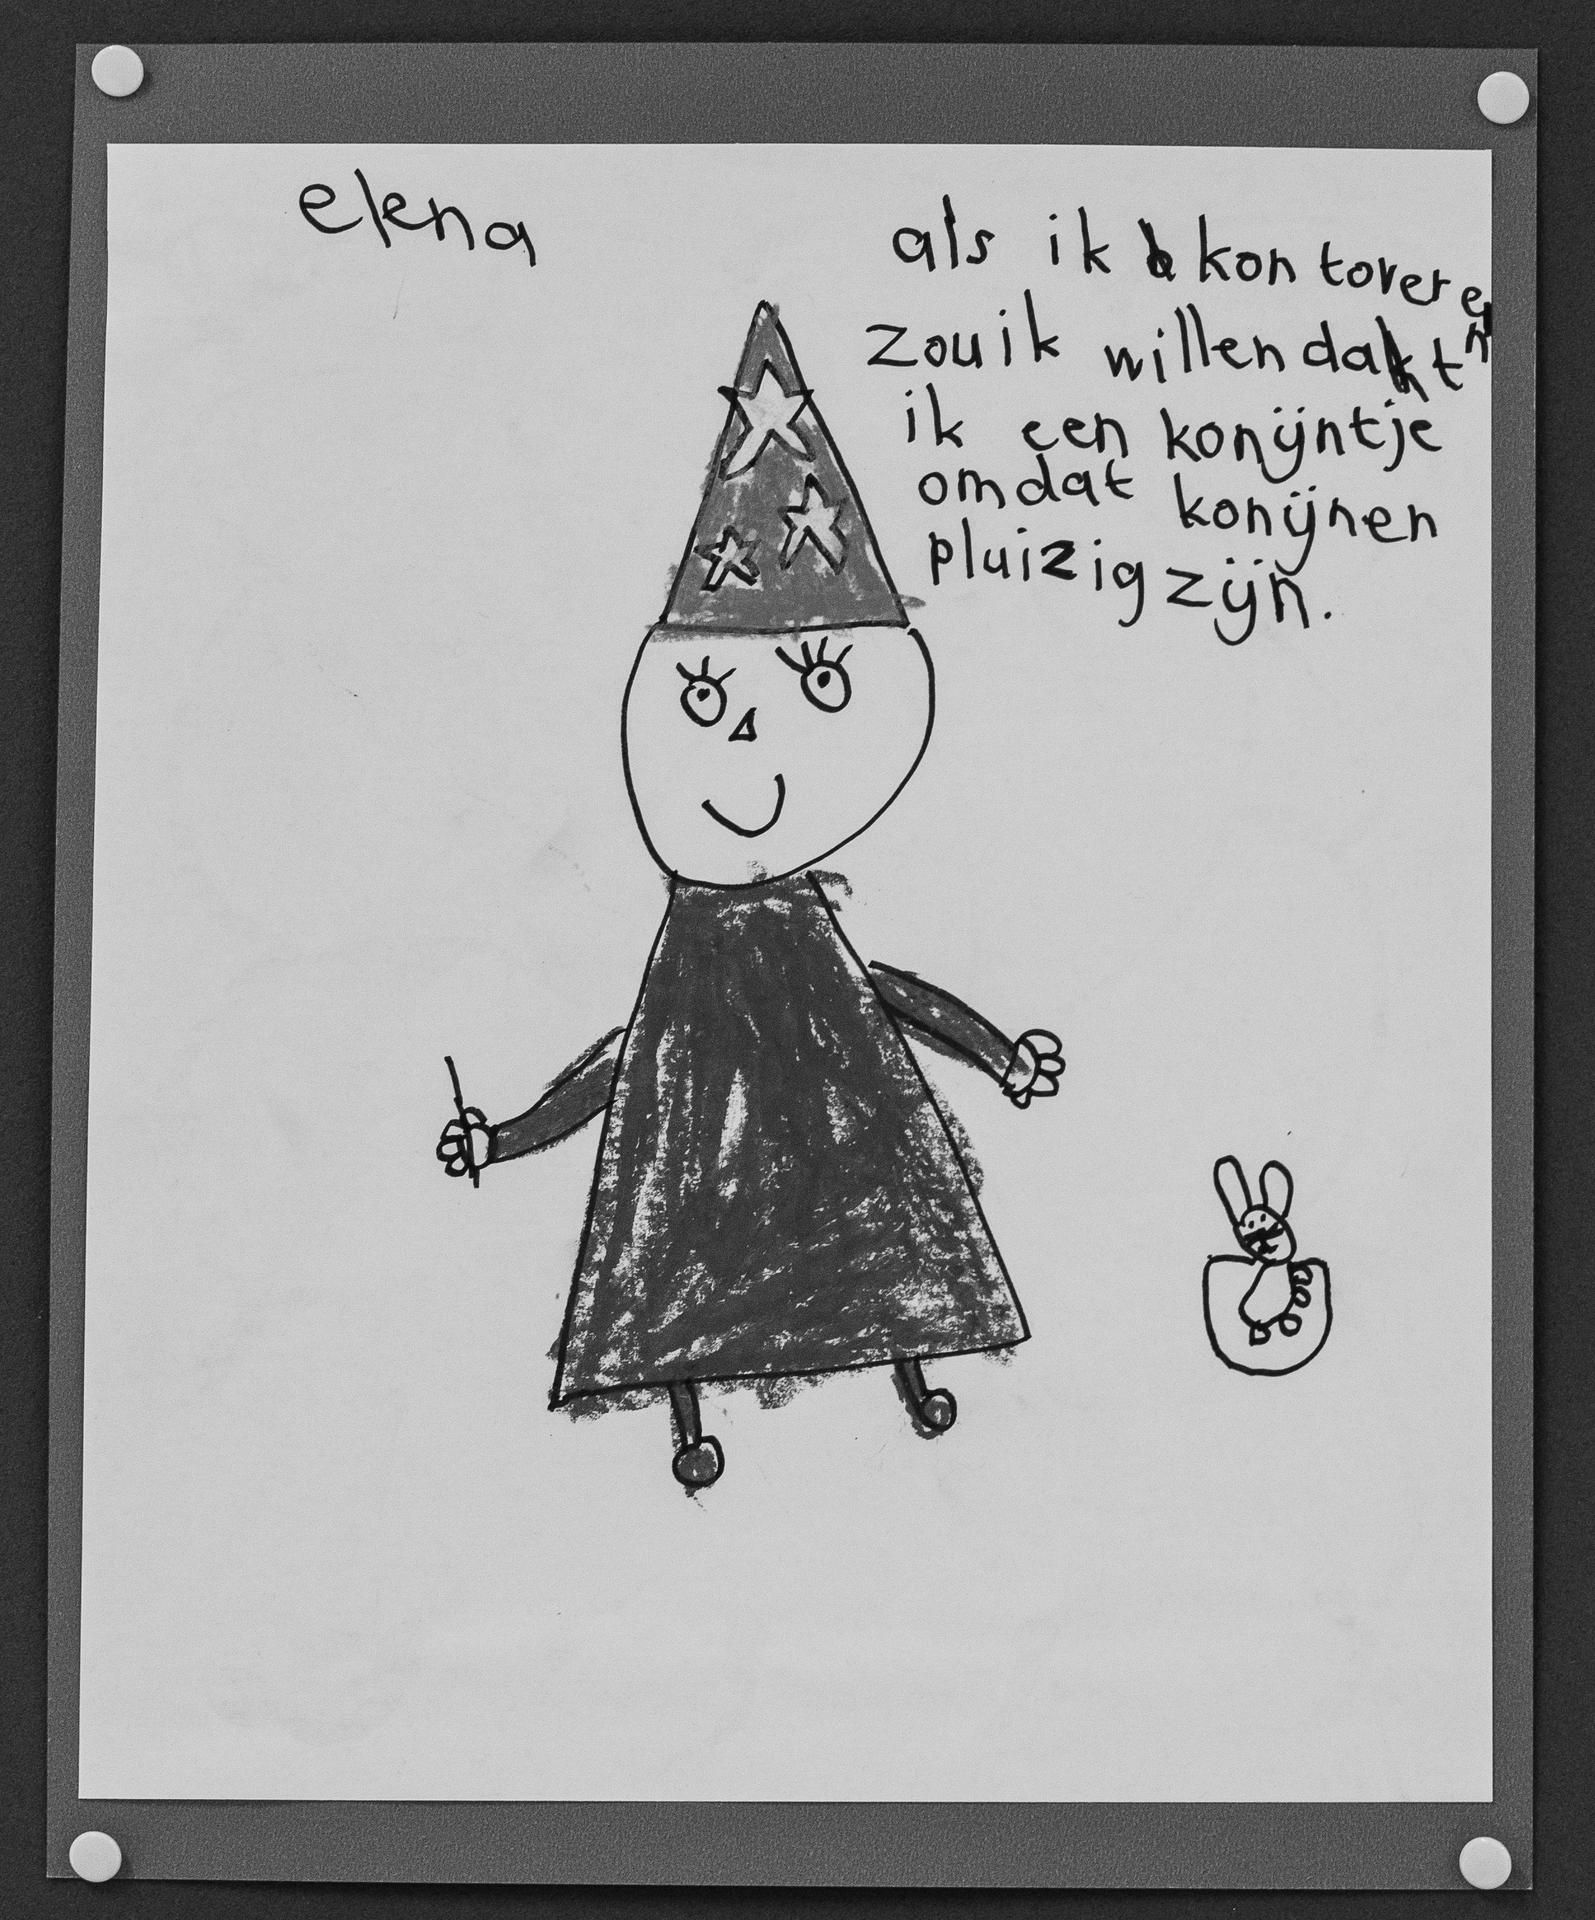 elena
als ik kon toveren
zou ik willen dat
ik een konijntje
omdat konijnen
pluizig zijn.